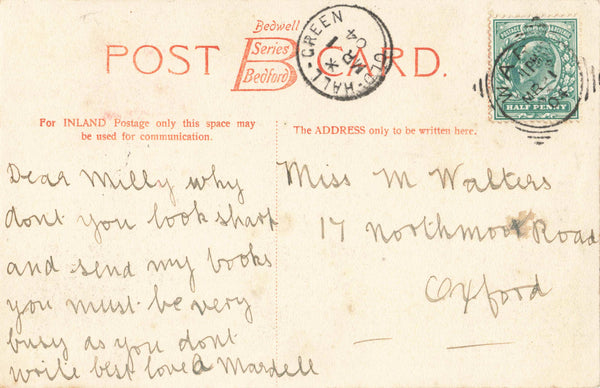 POST CARD.
Bedwell
Series
Bedford
OLD-HALL-GREEN
MR 1
04
POSTAGE & REVENUE
HALF PENNY
WAR
MR 1
For INLAND Postage only this space may
be used for communication.
The ADDRESS only to be written here.
Dear Milly why
dont you look sharp
and send my books
you must be very
busy as you dont
write best love A Mardell
Miss M Walters
17 Northmoor Road
Oxford